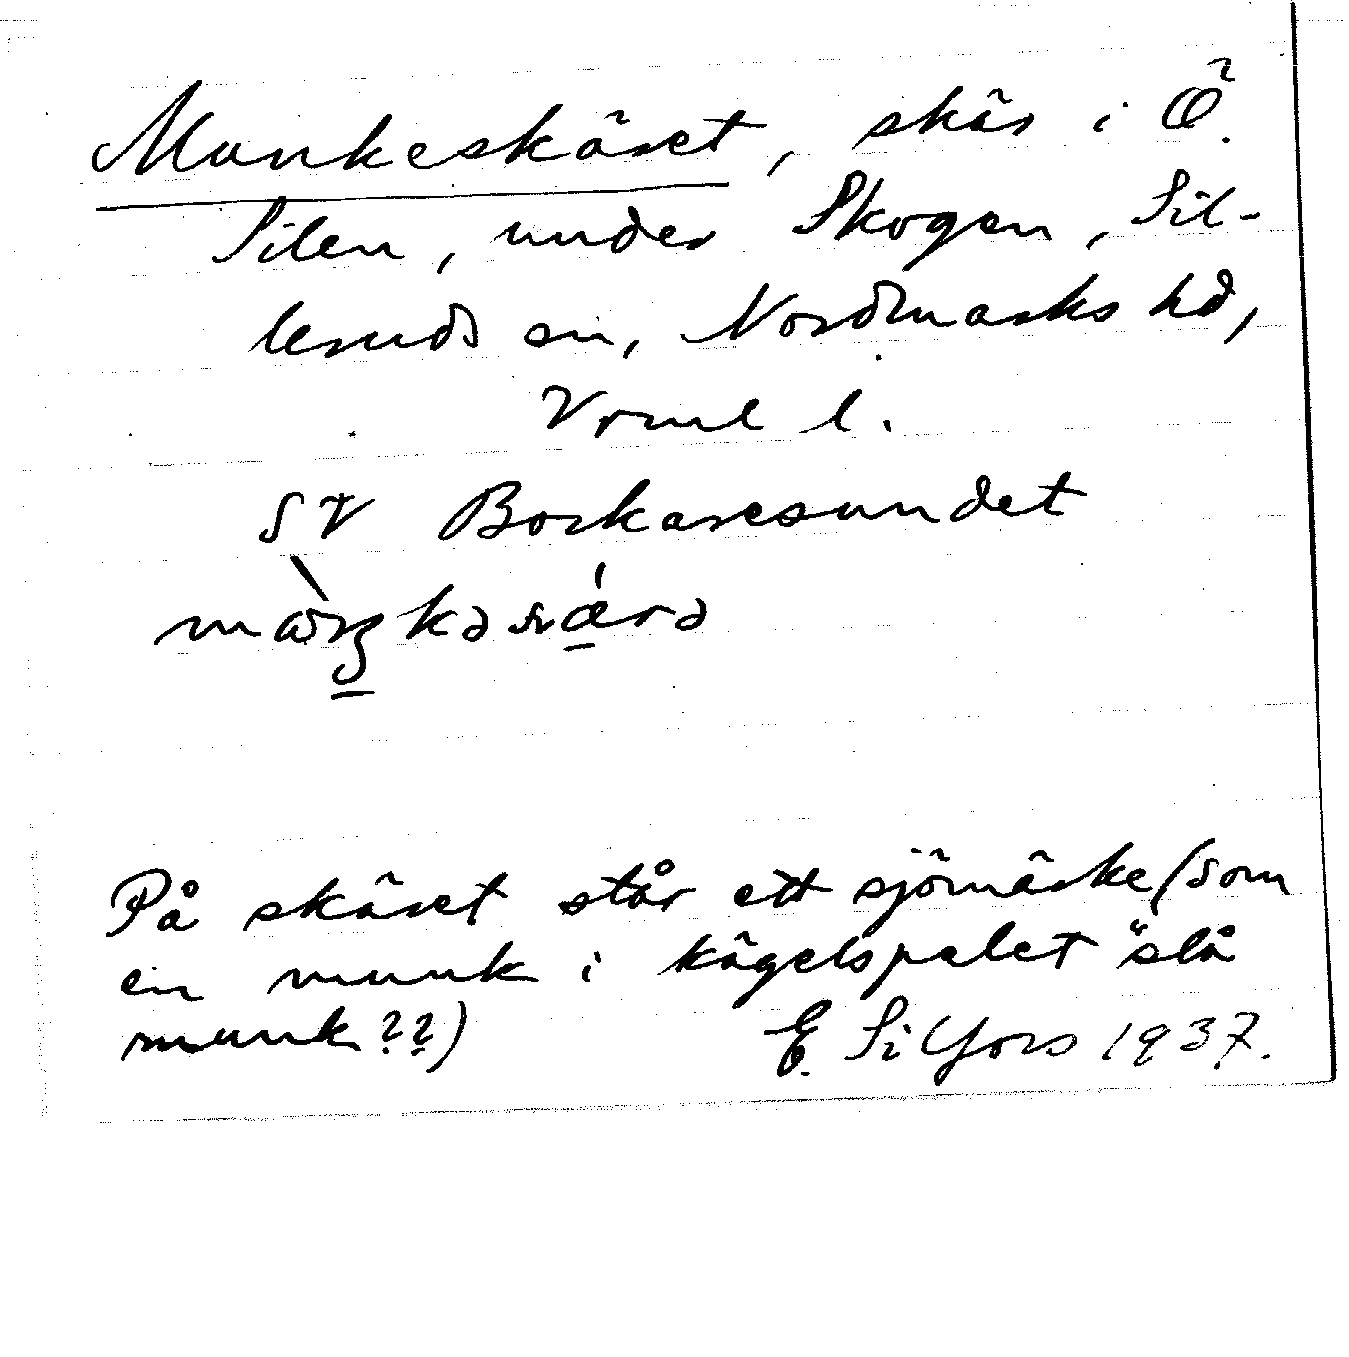 Munkeskäret, skär i Ö.
Silen, under Skogen, Sil-
leruds sn, Nordmarks hd,
Vrml l.
SV Borkaresundet
På skäret står ett sjömärke (som
en munk i kägelspelet "slå
munk??) E. Silfors 1937.